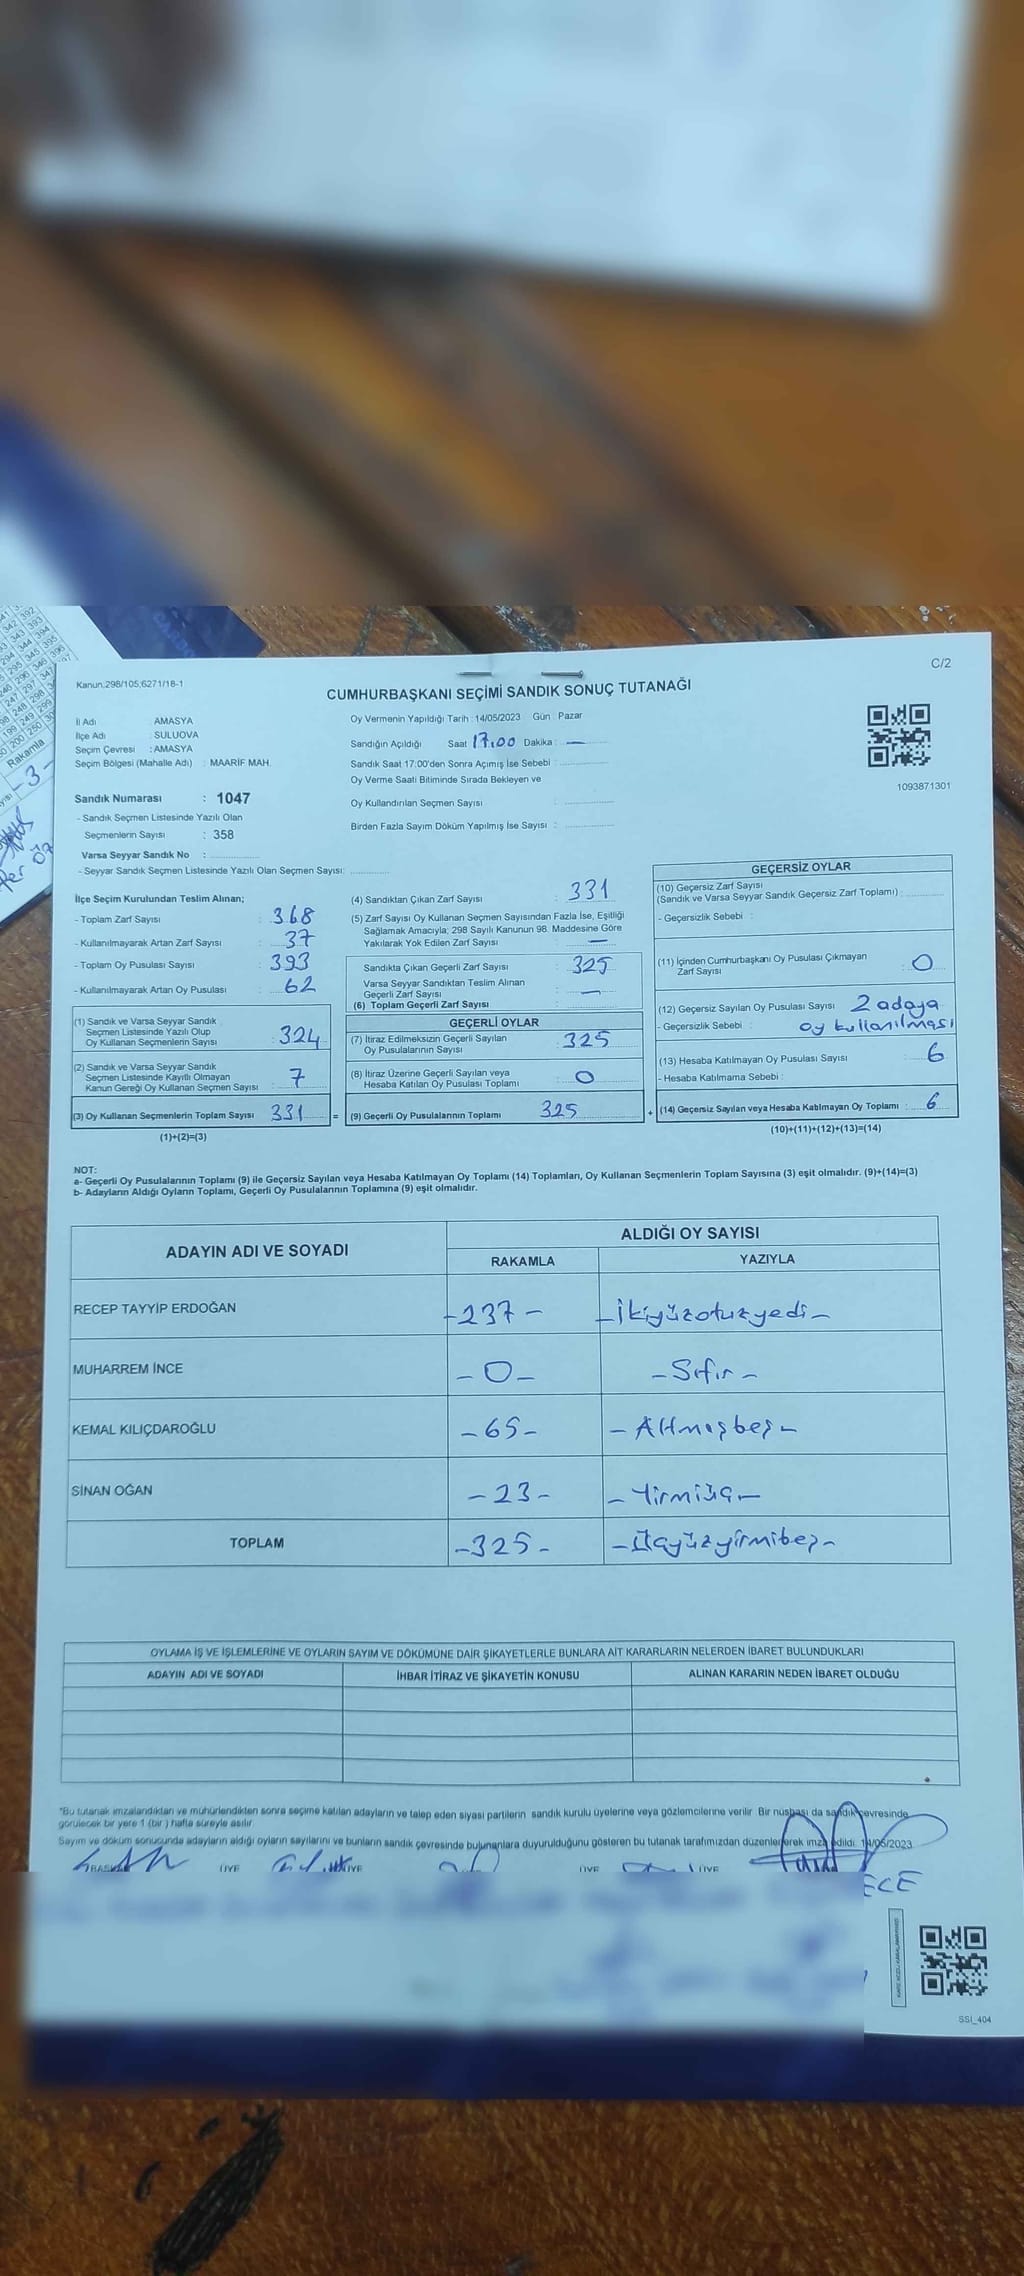 C/2
Kanun:298/105;6271/18-1
CUMHURBAŞKANI SEÇİMİ SANDIK SONUÇ TUTANAĞI
İl Adı : AMASYA
İlçe Adı : SULUOVA
Seçim Çevresi : AMASYA
Seçim Bölgesi (Mahalle Adı) : MAARİF MAH.
Oy Vermenin Yapıldığı Tarih : 14/05/2023 Gün : Pazar
Sandığın Açıldığı Saat 17.00 Dakika : —
Sandık Saat 17:00'den Sonra Açımış İse Sebebi :
Oy Verme Saati Bitiminde Sırada Bekleyen ve
Oy Kullandırılan Seçmen Sayısı :
Birden Fazla Sayım Döküm Yapılmış İse Sayısı :
1093871301
Sandık Numarası : 1047
- Sandık Seçmen Listesinde Yazılı Olan
Seçmenlerin Sayısı : 358
Varsa Seyyar Sandık No :
- Seyyar Sandık Seçmen Listesinde Yazılı Olan Seçmen Sayısı:
İlçe Seçim Kurulundan Teslim Alınan;
- Toplam Zarf Sayısı : 368
- Kullanılmayarak Artan Zarf Sayısı : 37
- Toplam Oy Pusulası Sayısı : 393
- Kullanılmayarak Artan Oy Pusulası : 62
(1) Sandık ve Varsa Seyyar Sandık
Seçmen Listesinde Yazılı Olup
Oy Kullanan Seçmenlerin Sayısı : 324
(2) Sandık ve Varsa Seyyar Sandık
Seçmen Listesinde Kayıtlı Olmayan
Kanun Gereği Oy Kullanan Seçmen Sayısı : 7
(3) Oy Kullanan Seçmenlerin Toplam Sayısı : 331 =
(1)+(2)=(3)
(4) Sandıktan Çıkan Zarf Sayısı : 331
(5) Zarf Sayısı Oy Kullanan Seçmen Sayısından Fazla İse, Eşitliği
Sağlamak Amacıyla; 298 Sayılı Kanunun 98. Maddesine Göre
Yakılarak Yok Edilen Zarf Sayısı : —
Sandıkta Çıkan Geçerli Zarf Sayısı : 325
Varsa Seyyar Sandıktan Teslim Alınan
Geçerli Zarf Sayısı : —
(6) Toplam Geçerli Zarf Sayısı :
GEÇERLİ OYLAR
(7) İtiraz Edilmeksizin Geçerli Sayılan
Oy Pusulalarının Sayısı : 325
(8) İtiraz Üzerine Geçerli Sayılan veya
Hesaba Katılan Oy Pusulası Toplamı : 0
(9) Geçerli Oy Pusulalarının Toplamı : 325 +
GEÇERSİZ OYLAR
(10) Geçersiz Zarf Sayısı
(Sandık ve Varsa Seyyar Sandık Geçersiz Zarf Toplamı) :
- Geçersizlik Sebebi :
(11) İçinden Cumhurbaşkanı Oy Pusulası Çıkmayan
Zarf Sayısı : 0
(12) Geçersiz Sayılan Oy Pusulası Sayısı : 2 adaya
- Geçersizlik Sebebi : oy kullanılması
(13) Hesaba Katılmayan Oy Pusulası Sayısı : 6
- Hesaba Katılmama Sebebi :
(14) Geçersiz Sayılan veya Hesaba Katılmayan Oy Toplamı : 6
(10)+(11)+(12)+(13)=(14)
NOT:
a- Geçerli Oy Pusulalarının Toplamı (9) ile Geçersiz Sayılan veya Hesaba Katılmayan Oy Toplamı (14) Toplamları, Oy Kullanan Seçmenlerin Toplam Sayısına (3) eşit olmalıdır. (9)+(14)=(3)
b- Adayların Aldığı Oyların Toplamı, Geçerli Oy Pusulalarının Toplamına (9) eşit olmalıdır.
ADAYIN ADI VE SOYADI ALDIĞI OY SAYISI
RAKAMLA YAZIYLA
RECEP TAYYİP ERDOĞAN -237- -İkiyüzotuzyedi-
MUHARREM İNCE -0- -Sıfır-
KEMAL KILIÇDAROĞLU -65- -Altmışbeş-
SİNAN OĞAN -23- -Yirmiüç-
TOPLAM -325- -Üçyüzyirmibeş-
OYLAMA İŞ VE İŞLEMLERİNE VE OYLARIN SAYIM VE DÖKÜMÜNE DAİR ŞİKAYETLERLE BUNLARA AİT KARARLARIN NELERDEN İBARET BULUNDUKLARI
ADAYIN ADI VE SOYADI İHBAR İTİRAZ VE ŞİKAYETİN KONUSU ALINAN KARARIN NEDEN İBARET OLDUĞU
*Bu tutanak imzalandıktan ve mühürlendikten sonra seçime katılan adayların ve talep eden siyasi partilerin sandık kurulu üyelerine veya gözlemcilerine verilir. Bir nüshası da sandık çevresinde
görülecek bir yere 1 (bir) hafta süreyle asılır.
Sayım ve döküm sonucunda adayların aldığı oyların sayılarını ve bunların sandık çevresinde bulunanlara duyurulduğunu gösteren bu tutanak tarafımızdan düzenlenerek imza edildi. 14/05/2023
BAŞKAN ÜYE ÜYE ÜYE ÜYE
ECE
SSI_404